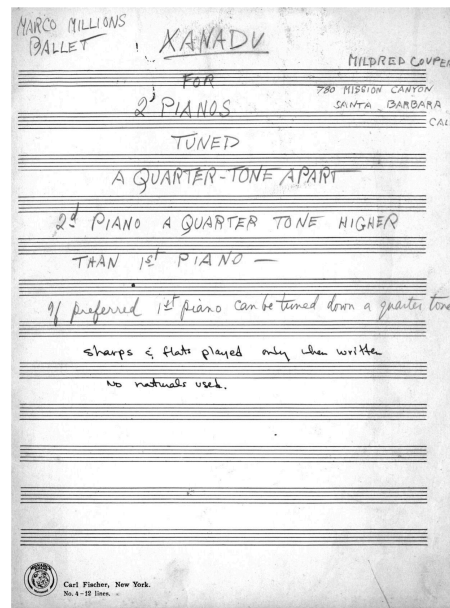 MARCO MILLIONS
BALLET
XANADU
MILDRED COUPER
FOR
780 MISSION CANYON
2 PIANOS
SANTA BARBARA
CAL
TUNED
A QUARTER-TONE APART
2d PIANO A QUARTER TONE HIGHER
THAN 1st PIANO —
If preferred 1st piano can be tuned down a quarter tone
sharps & flats played only when written
No naturals used.
Carl Fischer, New York.
No. 4 – 12 lines.